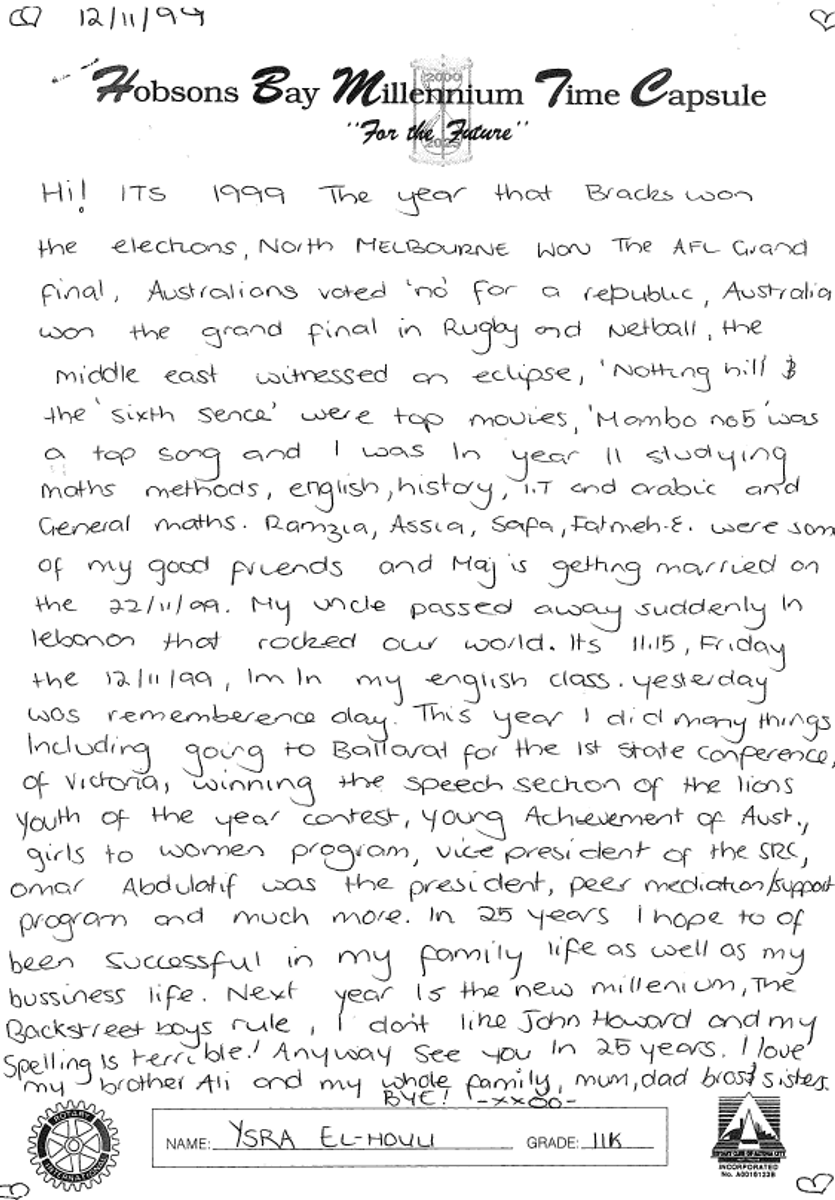 12/11/99
Hobsons Bay Millennium Time Capsule
2000
"For the Future"
2025
Hi! ITS 1999 The year that Bracks won
the elections, NORTH MELBOURNE WON The AFL Grand
final, Australians voted 'no' for a republic, Australia
won the grand final in Rugby and Netball, the
middle east witnessed an eclipse, 'Notting hill &
the 'sixth sence' were top movies, 'Mambo no5' was
a top song and I was In year 11 studying
maths methods, english, history, I.T and arabic and
General maths. Ramzia, Assia, Safa, Fatmeh.E. were som
of my good friends and Maj is getting married on
the 22/11/99. My uncle passed away suddenly In
lebanon that rocked our world. Its 11.15, Friday
the 12/11/99, Im In my english class. yesterday
was rememberence day. This year I did many things
Including going to Ballarat for the 1st state conference,
of Victoria, winning the speech section of the lions
Youth of the year contest, Young Achievement of Aust.,
girls to women program, vice president of the SRC,
omar Abdulatif was the president, peer mediation/support
program and much more. In 25 years I hope to of
been successful in my family life as well as my
bussiness life. Next year is the new millenium, The
Backstreet boys rule, I don't like John Howard and my
Spelling Is terrible! Anyway See you In 25 years. I love
my brother Ali and my whole family, mum, dad bros & sisters.
BYE! -xxoo-
ROTARY
INTERNATIONAL
NAME: YSRA EL-HOULI GRADE: 11K
ROTARY CLUB OF ALTONA CITY
INCORPORATED
No. A0016123B